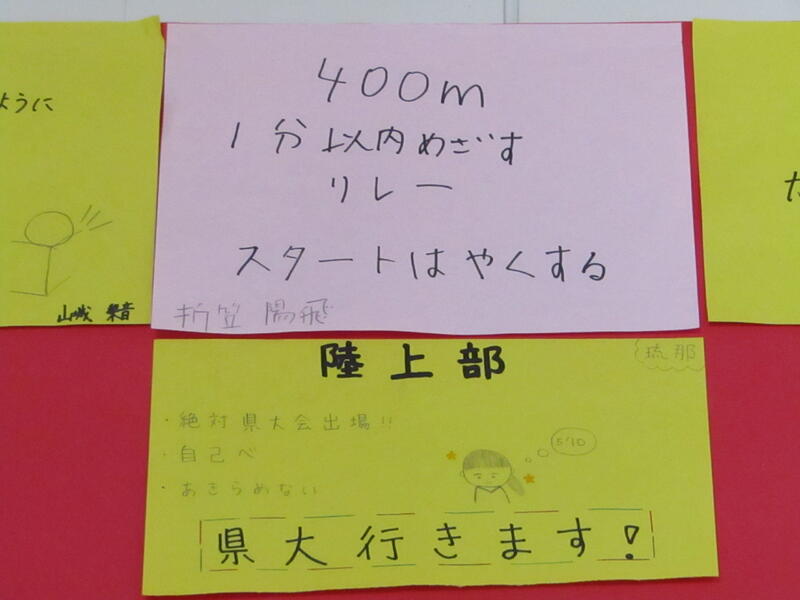 ように
山城 楽音
400m
1分以内めざす
リレー
スタートはやくする
折笠 陽飛
た
陸上部
琉那
・絶対県大会出場!!
・自己べ
・あきらめない
5'10
県大行きます!